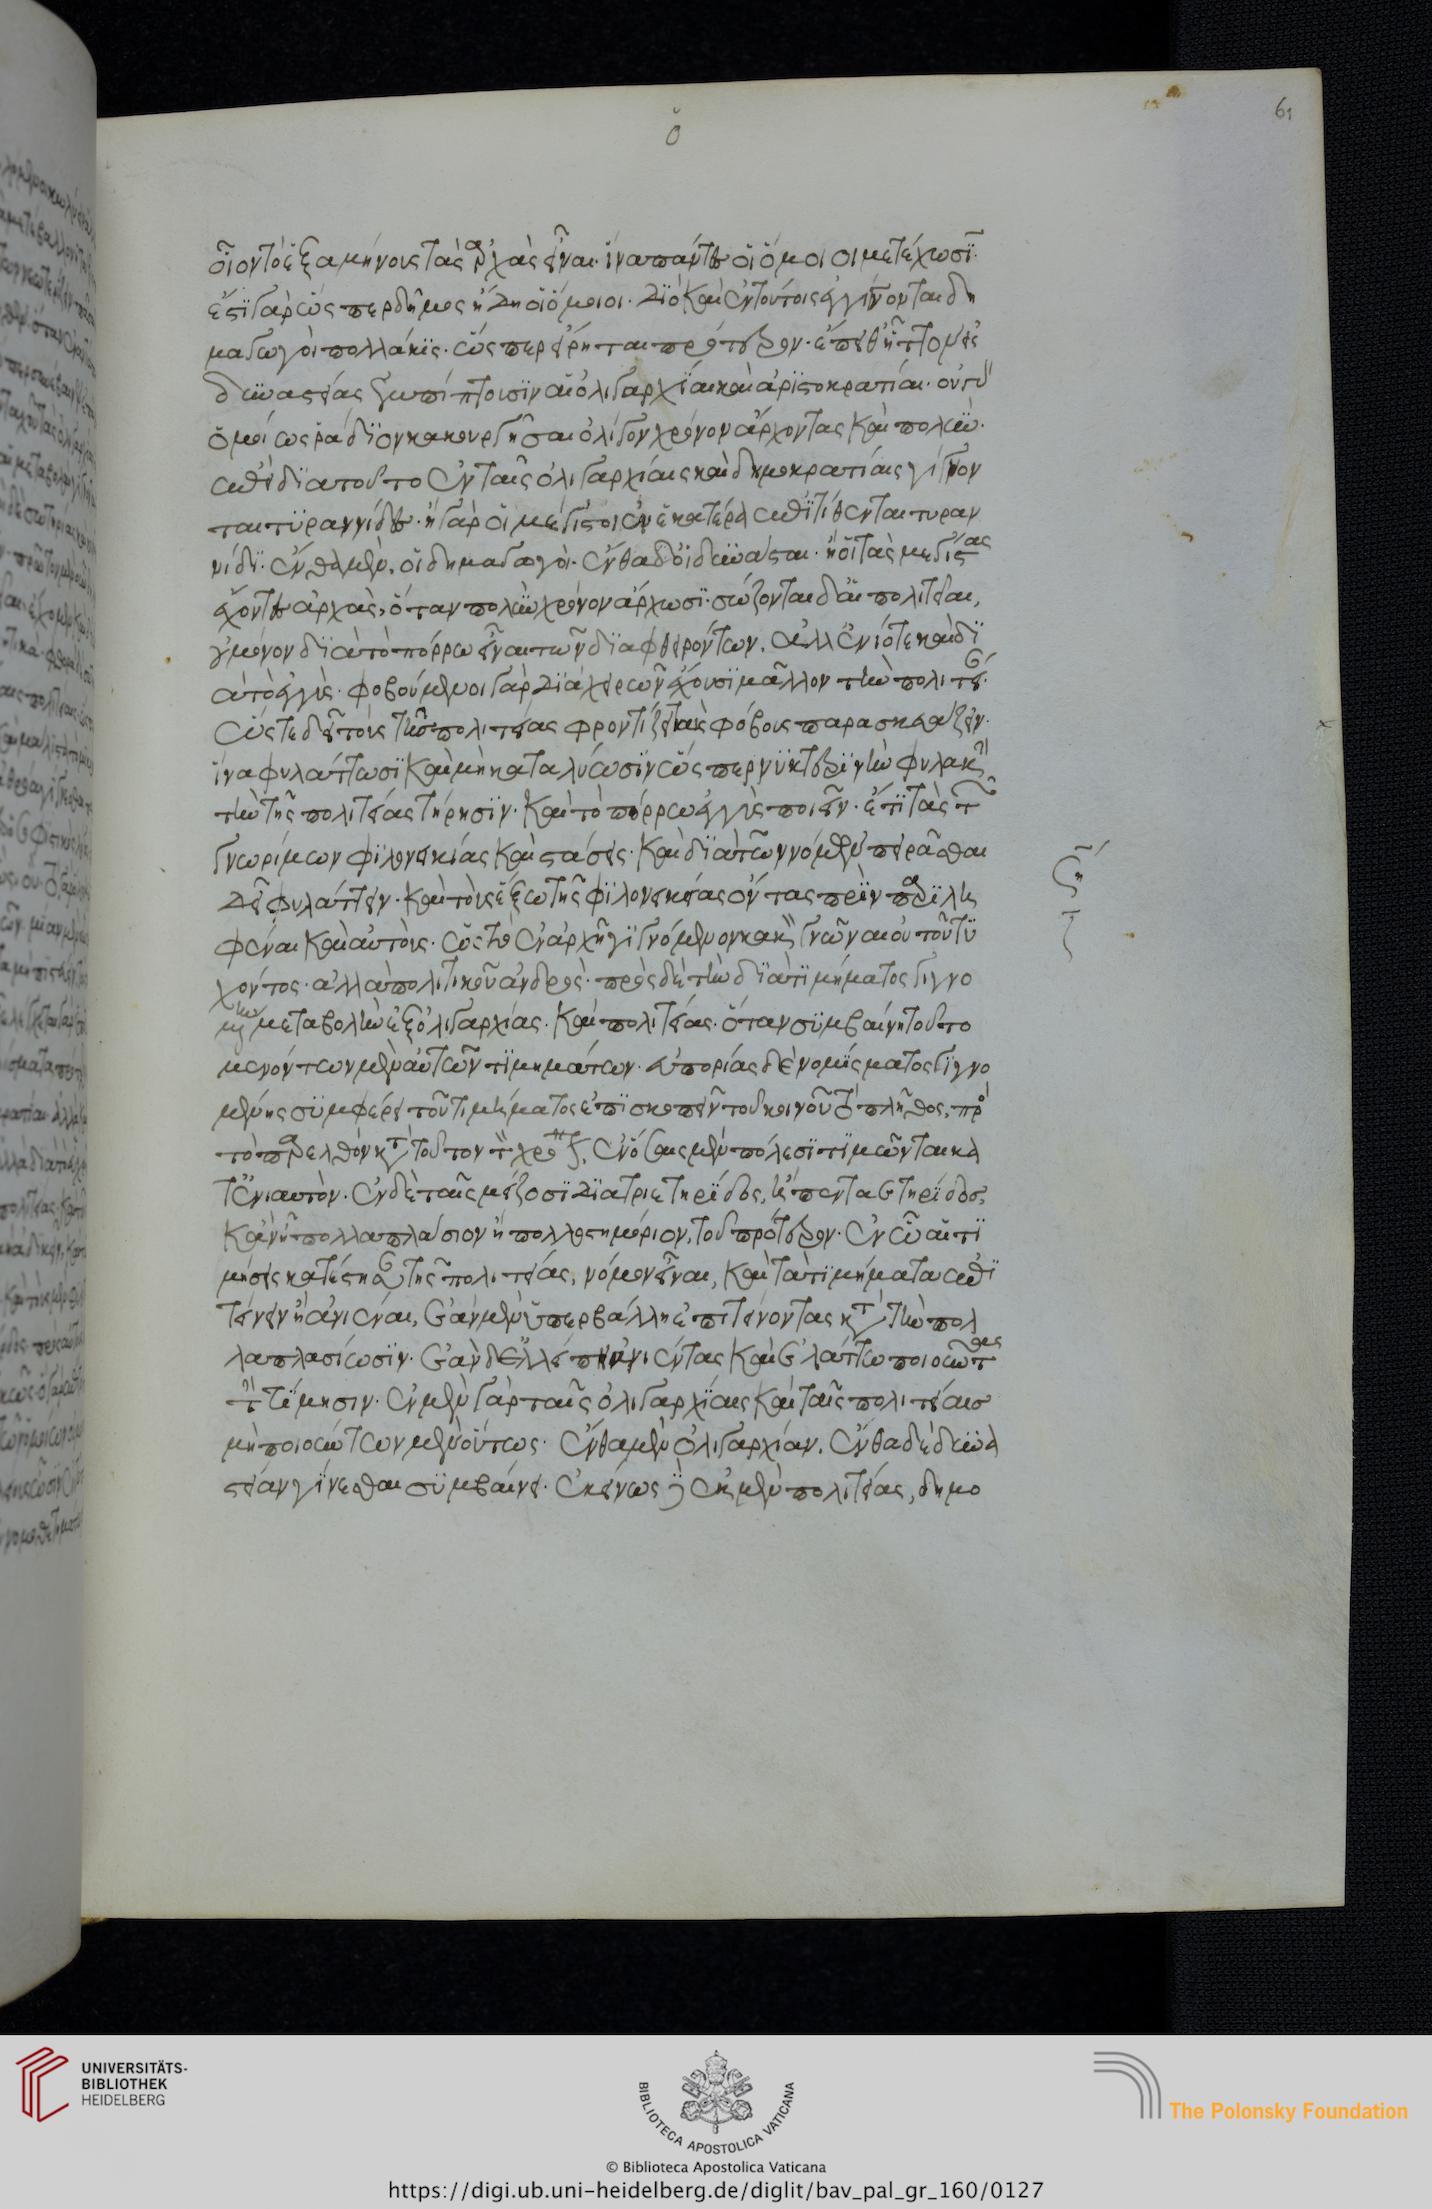 ο̄
61
οἷον τὸ ἑξαμήνους τὰς ἀρχὰς εἶναι. ἵνα πάντες οἱ ὅμοιοι μετέχωσϊ.
ἔστϊ γὰρ ὥσπερ δῆμος ἤδη οἱ ὅμοιοι. διὸ καὶ ἐν τούτοις ἐγγίγνονται δη
μαγωγοὶ πολλάκις. ὥσπερ εἴρηται πρότερον. ἔπειθ' ἧττον εἰς
δυναστείας ἐμπίπτουσιν αἱ ὀλιγαρχίαι καὶ ἀριστοκρατίαι. οὐ γὰρ
ὁμοίως ῥάδϊον κακουργῆσαι ὀλίγον χρόνον ἄρχοντας καὶ πολύν.
ἐπεὶ διὰ τοῦτο ἐν ταῖς ὀλιγαρχίαις καὶ δημοκρατίαις γίγνον
ται τυραννίδες. ἢ γὰρ οἱ μέγιστοι ἐν ἑκατέρα ἐπιτίθενται τυραν
νίδι. ἔνθα μὲν, οἱ δημαγωγοὶ. ἔνθα δ' οἱ δυνάσται. ἢ οἱ τὰς μεγίστας
ἔχοντες ἀρχὰς, ὅταν πολὺν χρόνον ἄρχωσϊ. σώζονται δ' αἱ πολιτεῖαι,
οὐ μόνον διὰ τὸ πόρρω εἶναι τῶν διαφθειρόντων. ἀλλ' ἐνίοτε καὶ δϊ
ὰ τὸ ἐγγὺς. φοβούμενοι γὰρ διὰ χειρῶν ἔχουσϊ μᾶλλον τὴν πολιτείαν.
ὥστε δεῖ τοὺς τῆς πολιτείας φροντίζοντας φόβους παρασκευάζειν.
ἵνα φυλάττωσϊ καὶ μὴ καταλύωσϊν ὥσπερ νυκτερινὴν φυλακὴν
τὴν τῆς πολιτείας τήρησϊν. καὶ τὸ πόρρω ἐγγὺς ποιεῖν. ἔτϊ τὰς τῶν
γνωρίμων φϊλονεικίας καὶ στάσεις. καὶ διὰ τῶν νόμων πειρᾶσθαι
δεῖ φυλάττειν. καὶ τοὺς ἔξω τῆς φϊλονεικίας ὄντας πρὶν παρειλη
φέναι καὶ αὐτοὺς. ὡς τὸ ἐν ἀρχῆ γϊγνόμενον κακὸν γνῶναι οὐ τοῦ τυ
χόντος. ἀλλὰ πολιτικοῦ ἀνδρὸς. πρὸς δὲ τὴν διὰ τϊμήματος γιγνο
μένην μεταβολὴν ἐξ ὀλιγαρχίας. καὶ πολιτείας. ὅταν συμβαίνη τοῦτο
μενόντων μὲν αὐτῶν τϊμημάτων. εὐπορίας δὲ νομίσματος γιγνο
μένης συμφέρει τοῦ τιμήματος ἐπϊσκοπεῖν τοῦ κοινοῦ τὸ πλῆθος, πρὸς
τὸ παρελθὸν κατὰ τοῦτον τὸν χρόνον, ἐν ὅσαις μὲν πόλεσϊ τϊμῶνται κα
τ' ἐνιαυτὸν. ἐν δὲ ταῖς μείζοσϊ διὰ τριετηρίδος, ἢ πενταετηρίδος,
κἂν ᾖ πολλαπλάσιον ἢ πολλοστημόριον, τοῦ πρότερον. ἐν ᾧ αἱ τϊ
μήσεις κατέστησαν τῆς πολιτείας, νόμον εἶναι, καὶ τὰ τϊμήματα ἐπϊ
τείνειν ἢ ἀνιέναι, ἐὰν μὲν ὑπερβάλλη ἐπιτείνοντας κατὰ τὴν πολ
λαπλασίωσϊν. ἐὰν δ' ἐλλείπη ἀνιέντας καὶ ἐλάττω ποιοῦντας
τὴν τίμησιν. ἐν μὲν γὰρ ταῖς ὀλιγαρχίαις καὶ ταῖς πολιτείαις
μὴ ποιούντων μὲν οὕτως. ἔνθα μὲν ὀλιγαρχίαν. ἔνθα δὲ δυνα
στείαν γίνεσθαι συμβαίνει. ἐκείνως δὲ ἐκ μὲν πολιτείας, δημο
UNIVERSITÄTS-
BIBLIOTHEK
HEIDELBERG
BIBLIOTECA APOSTOLICA VATICANA
© Biblioteca Apostolica Vaticana
The Polonsky Foundation
https://digi.ub.uni-heidelberg.de/diglit/bav_pal_gr_160/0127